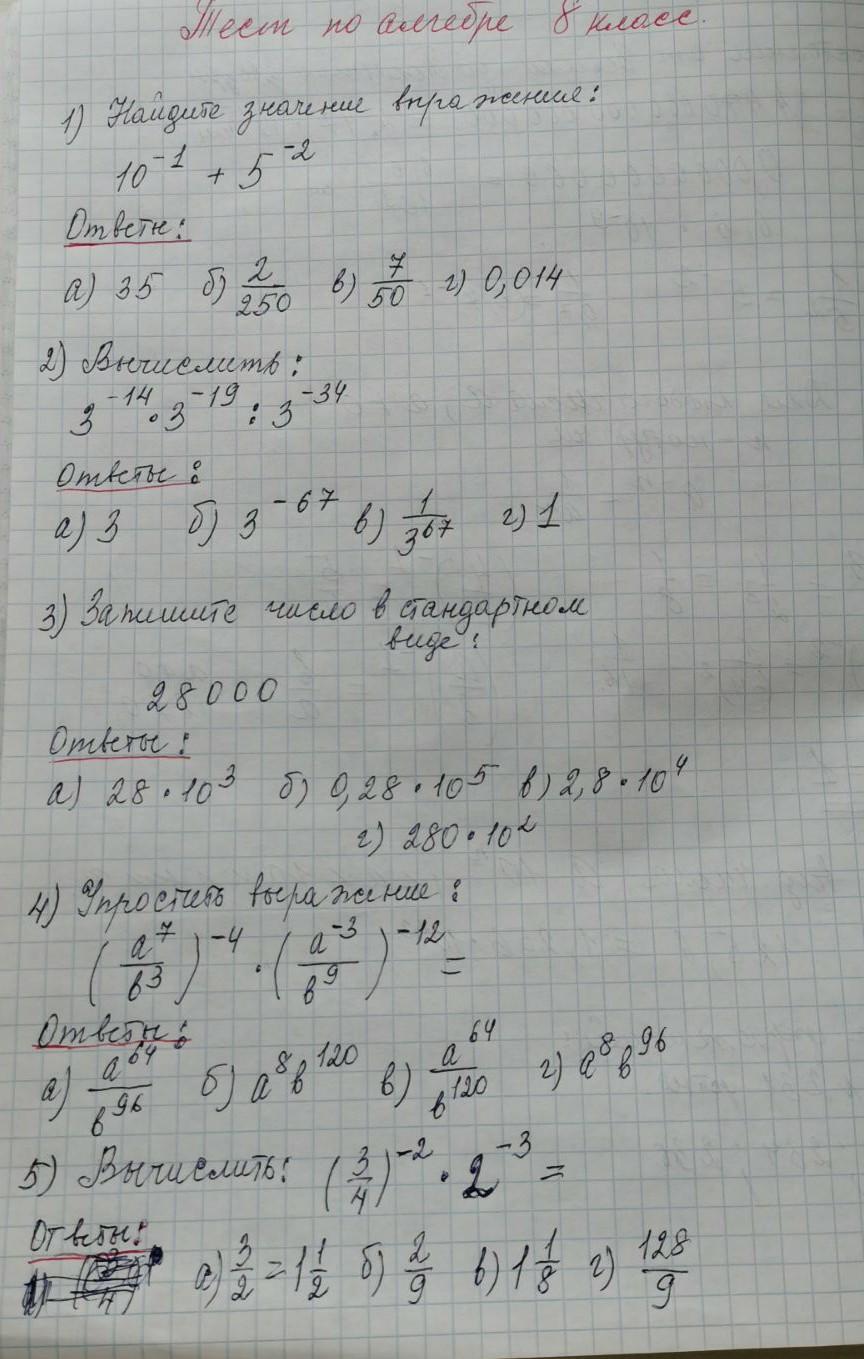 Тест по алгебре 8 класс.
1) Найдите значение выражения:
10⁻¹ + 5⁻²
Ответы:
а) 35 б) 2/250 в) 7/50 г) 0,014
2) Вычислить:
3⁻¹⁴ · 3⁻¹⁹ : 3⁻³⁴
Ответы:
а) 3 б) 3⁻⁶⁷ в) 1/3⁶⁷ г) 1
3) Запишите число в стандартном
виде:
28000
Ответы:
а) 28 · 10³ б) 0,28 · 10⁵ в) 2,8 · 10⁴
г) 280 · 10²
4) Упростить выражение:
(a⁷/b³)⁻⁴ · (a⁻³/b⁹)⁻¹² =
Ответы:
а) a⁶⁴/b⁹⁶ б) a⁸b¹²⁰ в) a⁶⁴/b¹²⁰ г) a⁸b⁹⁶
5) Вычислить: (3/4)⁻² · 2⁻³ =
Ответы:
а) 3/2 = 1 1/2 б) 2/9 в) 1 1/8 г) 128/9